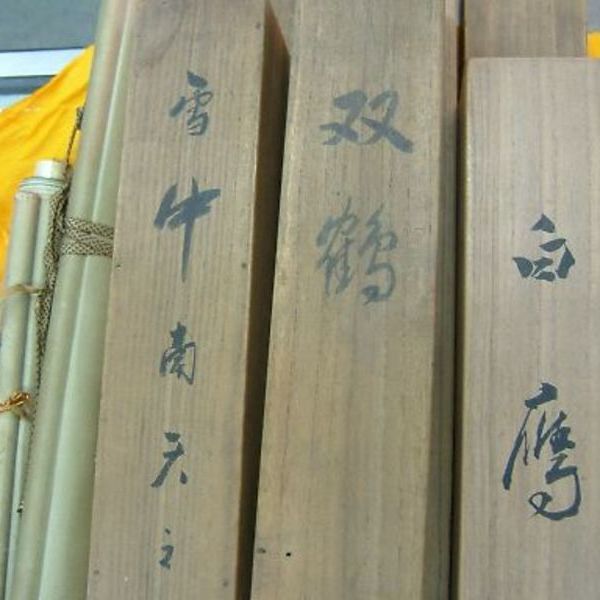 雪中南天之
双鶴
白鷹